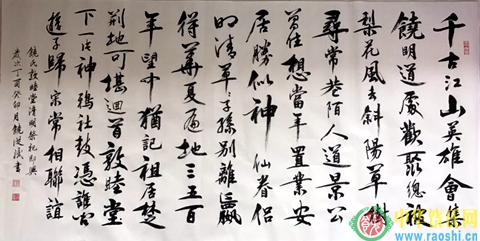 千古江山英雄會集
饒明道處歡聚總被
梨花風去斜陽草樹
尋常巷陌人道景公
曾住想當年置業安
居勝似神仙眷侶
明清子孫別離贏
得華夏遍地三五百
年望中猶記祖居楚
荊地可堪迴首敦睦堂
下一片神鴉社鼓憑誰
遊子歸宗常相聯誼
饒氏敦睦堂清明祭祀即興
歲次丁酉癸卯月饒書
中华饶集网
www.raoshi.cn